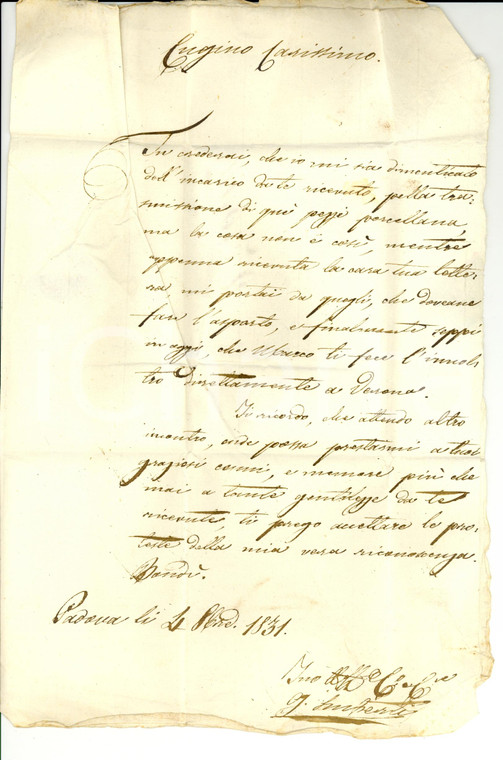 Cugino Carissimo.
Tu crederai, che io mi sia dimenticato
dell'incarico da te ricevuto, pella tra-
smissione di que' pezzi porcellana,
ma la cosa non è così, mentre
appenna ricevuta la cara tua lette-
ra mi portai da quegli, che doveane
fare l'asporto, e finalmente seppi
in oggi, che ti fece l'innol-
tro direttamente a Verona.
Ti ricordo, che attendo altro
incontro, onde possa prestarmi a tuoi
graziosi cenni, e memore più che
mai a tante gentilezze da te
ricevute, ti prego accettare le pro-
teste della mia vera riconoscenza.
Padova li 4 1831.
Tuo Aff
G.